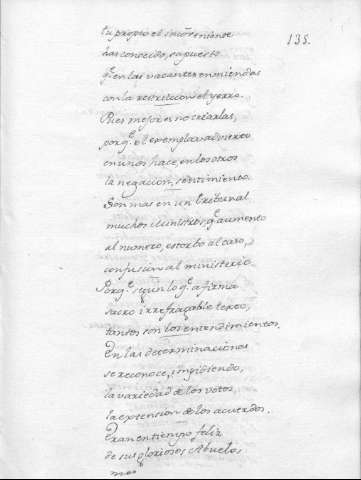 135.
tu proprio el inconveniente
has conocido, supuesto
q.e en las vacantes enmiendas
con la restriccion el yerro.
Pues mejor es no criarlas,
porq.e el exemplar advierto
en unos hace, en los otros
la negacion, sentimiento.
Son mas en un Tribunal
muchos Ministros, q.e aumento
al numero, estorbo al caso,
confusion al ministerio.
Porq.e segun lo q.e afirma
sacro irrefragable texto,
tantos son los entendimientos.
En las determinaciones
se reconoce, impidiendo,
la variedad de los votos,
la extension de los acuerdos.
Eran en tiempo feliz
de sus gloriosos Abuelos